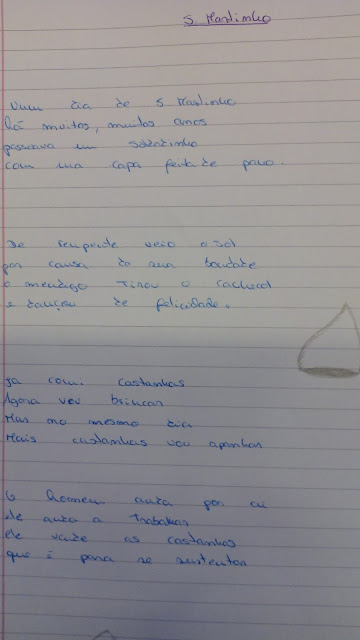 S. Martinho
Num dia de S Martinho
há muitos, muitos anos
passeava um soldadinho
com uma capa feita de pano.
De repente veio o sol
por causa da sua bondade
o mendigo tirou o cachecol
e dançou de felicidade.
Já comi castanhas
Agora vou brincar
Mas no mesmo dia
Mais castanhas vou apanhar
O homem anda por cá
ele anda a Trabalhar
ele vende as castanhas
que é para se sustentar